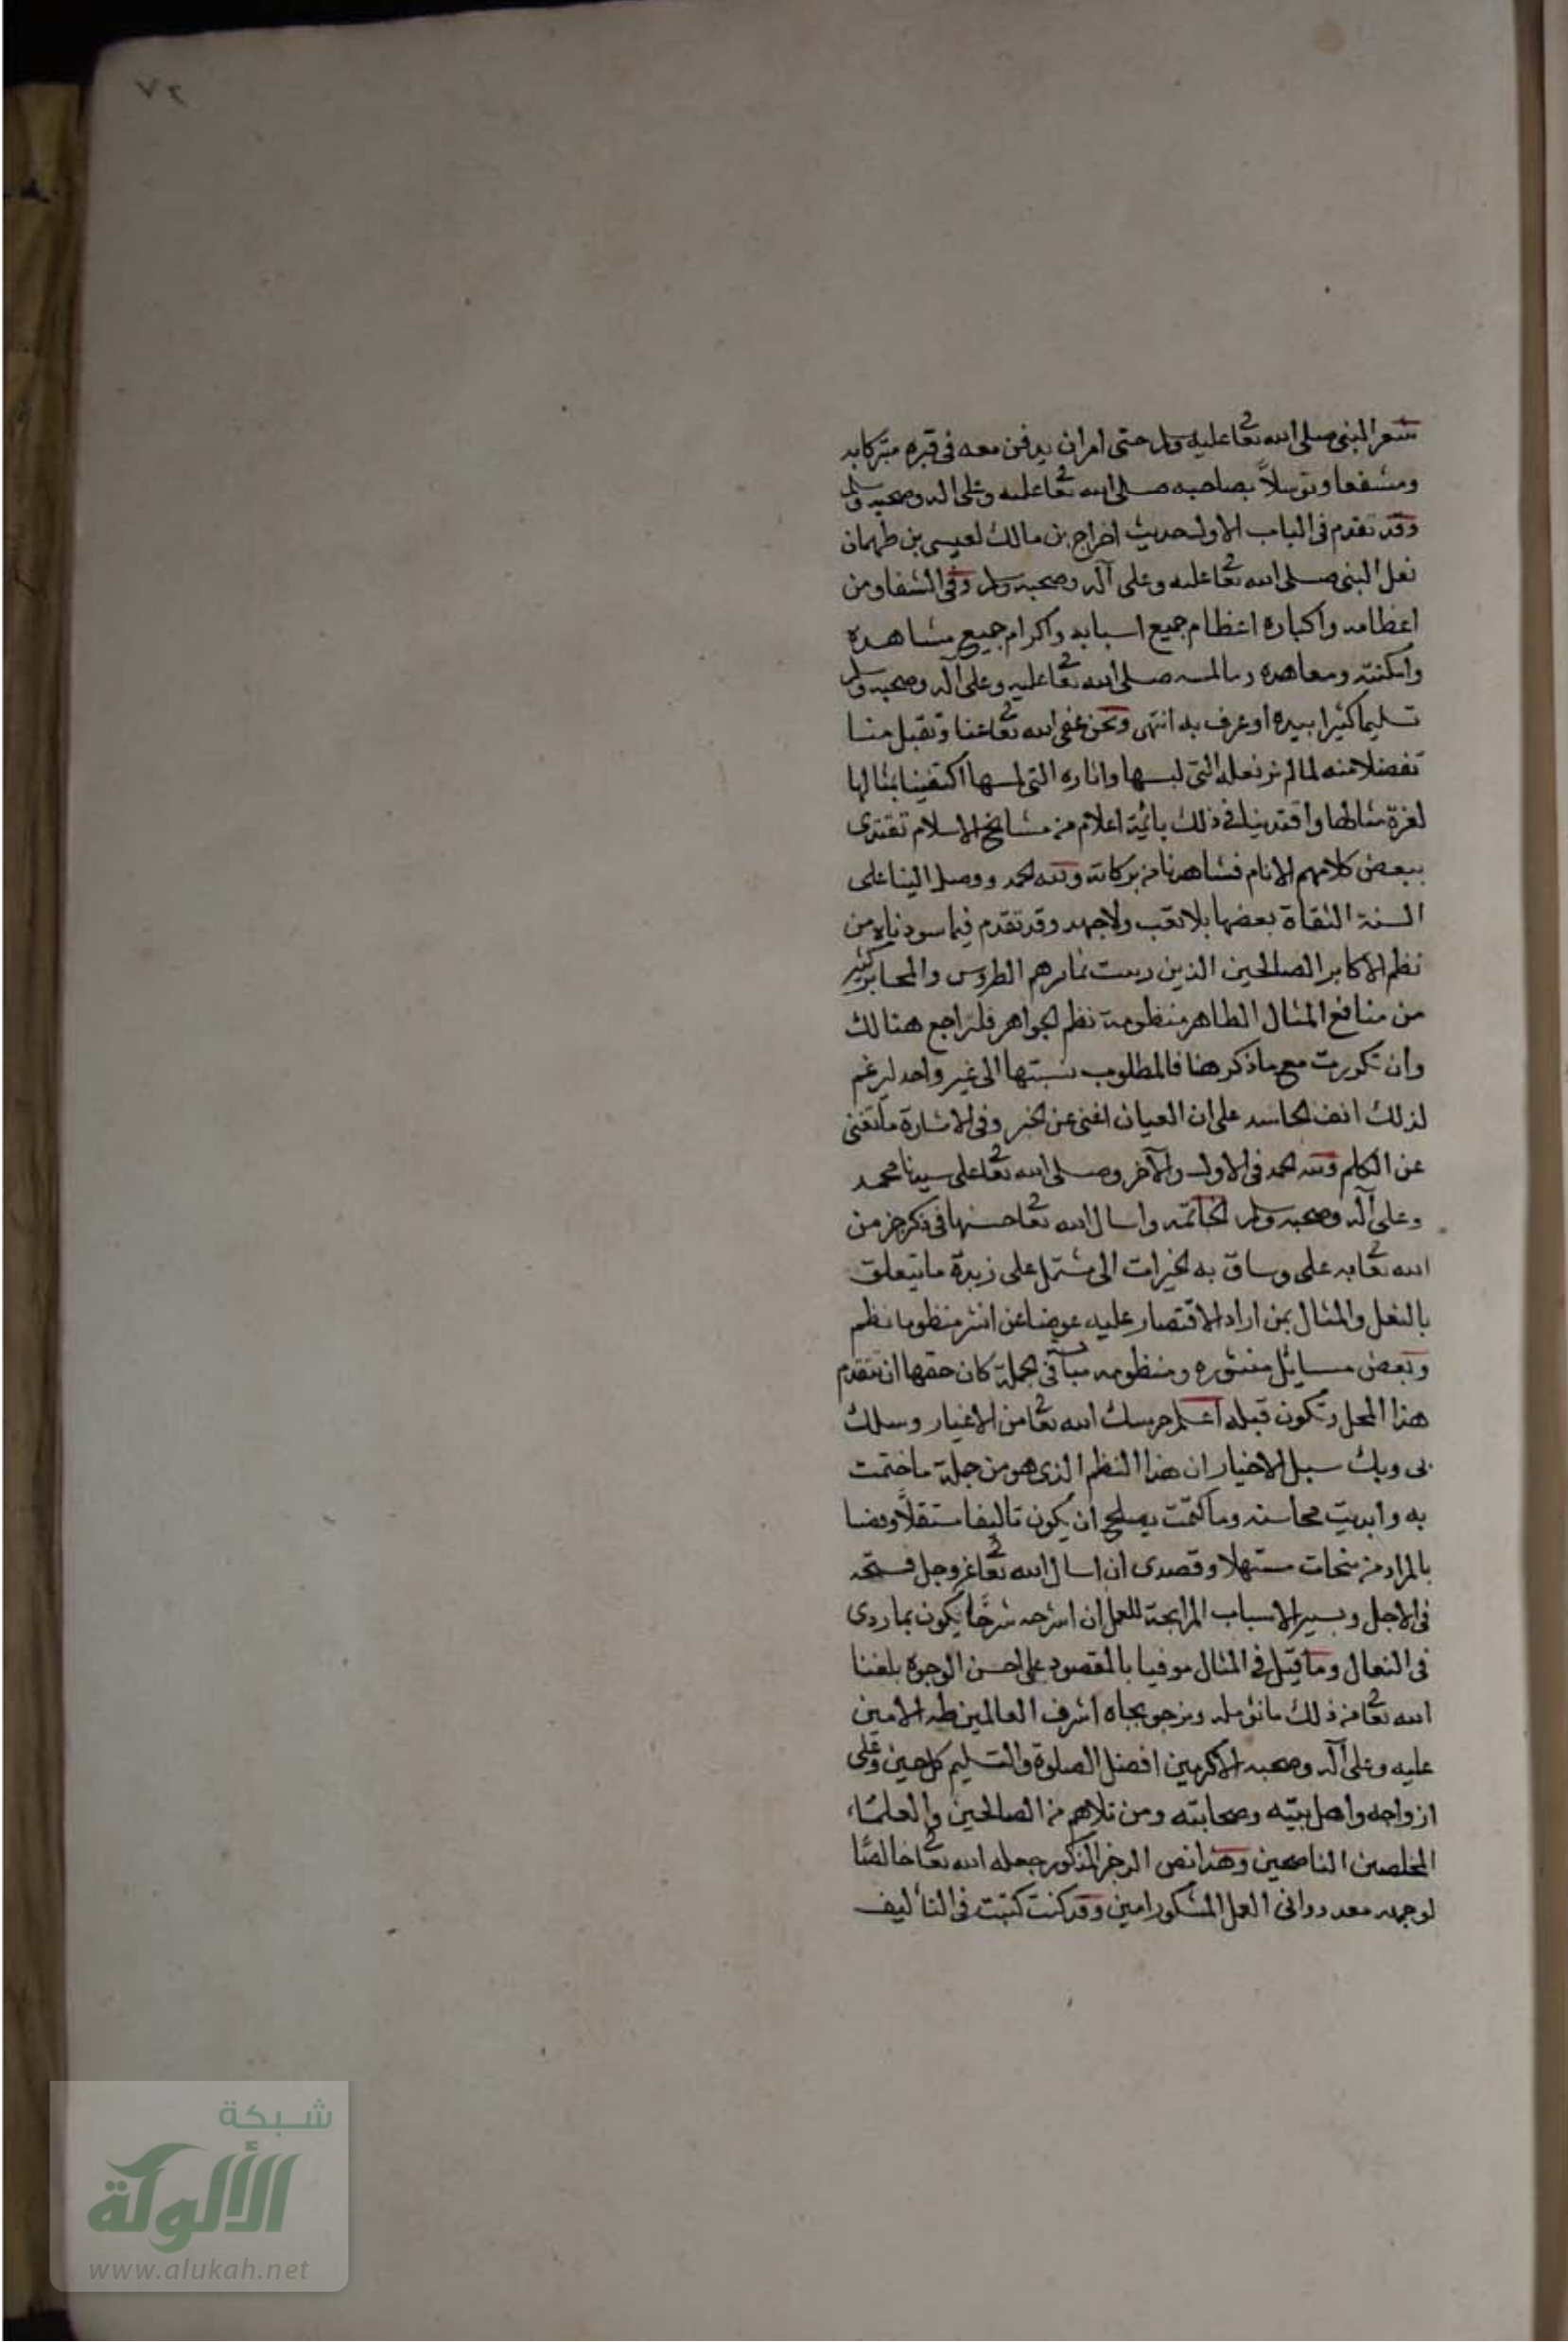 ٧٢
شعر النبى صلى الله تعا عليه وسلم حتى امر ان يدفن معه فى قبره متبركا به
ومشفعا وتوسلاً بصاحبه صلى الله تعا عليه وعلى اله وصحبه وسلم
وقد تقدم فى الباب الاول حديث اخراج بن مالك لعيسى بن طهمان
نعل النبى صلى الله تعا عليه وعلى آله وصحبه وسلم وفى الشفا ومن
اعظامه واكباره اعظام جميع اسبابه واكرام جميع مشاهده
وامكنته ومعاهده وما لمسه صلى الله تعا عليه وعلى آله وصحبه وسلم
تسليما كثيرا بيده او عرف به انتهى ونحن عفى الله تعا عنا وتقبل منا
تفضلا منه لما لم نر نعله التى لبسها واثاره التى لمسها اكتفينا بمثالها
لعزة منالها واقتدينا فى ذلك بائمة اعلام من مشايخ الاسلام تقتدى
ببعض كلامهم الانام فشاهدنا من بركاته ولله الحمد ووصل الينا على
السنة الثقاة بعضها بلا تعب ولا جهد وقد تقدم فيما سردناه من
نظم الاكابر الصالحين الذين الطروس والمحابر كثير
من منافع المثال الطاهر منظومة نظم الجواهر فلتراجع هنالك
وان تكررت مع ما ذكر هنا فالمطلوب نسبتها الى غير واحد ليرغم
لذلك انف الحاسد على ان العيان اغنى عن الخبر وفى الاشارة ما تغنى
عن الكلم ولله الحمد فى الاول والآخر وصلى الله تعا على سيدنا محمد
وعلى آله وصحبه وسلم الخاتمة واسال الله تعا حسنها فى ذكر رجز من
الله تعا به على وساق به الخيرات الى مشتمل على زبدة ما يتعلق
بالنعل والمثال لمن اراد الاقتصار عليه عوضا عن انثر منظوما نظم
وبعض مسايل منثوره ومنظومه فى الجملة كان حقها ان تتقدم
هذا المحل وتكون قبله اعلم حرسك الله تعا من الاغيار وسلك
بى وبك سبل الاخيار ان هذا النظم الذى هو من جملة ما ختمت
به وابديت محاسنه وما كتمت يصلح ان يكون تاليفا مستقلاً
بالمراد من مستهلا وقصدى ان اسال الله تعا عز وجل فسحة
فى الاجل وتيسير الاسباب للعمل ان اشرحه شرحًا يكون بما روى
فى النعال وما قيل فى المثال موفيا بالمقصود على احسن الوجوه بلغنا
الله تعا من ذلك ما نؤمله ونرجو بجاه اشرف العالمين طه الامين
عليه وعلى آله وصحبه الاكرمين افضل الصلوة والتسليم كل حين وعلى
ازواجه واهل بيته وصحابته ومن تلاهم من الصالحين والعلماء
المخلصين الناصحين وهذا نص الرجز المذكور جعله الله تعا خالصًا
لوجهه معدودا فى العمل المشكور امين وقد كنت كتبت فى التأليف
شبكة
الألوكة
www.alukah.net